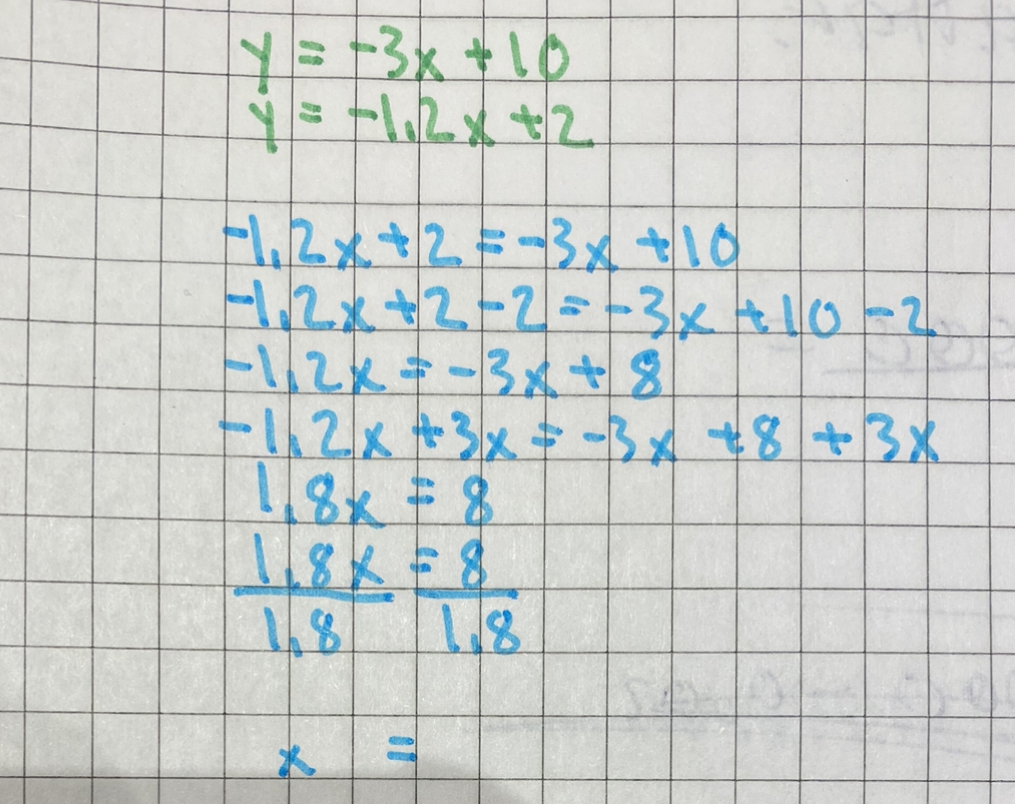 y = -3x + 10
y = -1,2x + 2
-1,2x + 2 = -3x + 10
-1,2x + 2 - 2 = -3x + 10 - 2
-1,2x = -3x + 8
-1,2x + 3x = -3x + 8 + 3x
1,8x = 8
1,8x = 8
1,8 1,8
x =